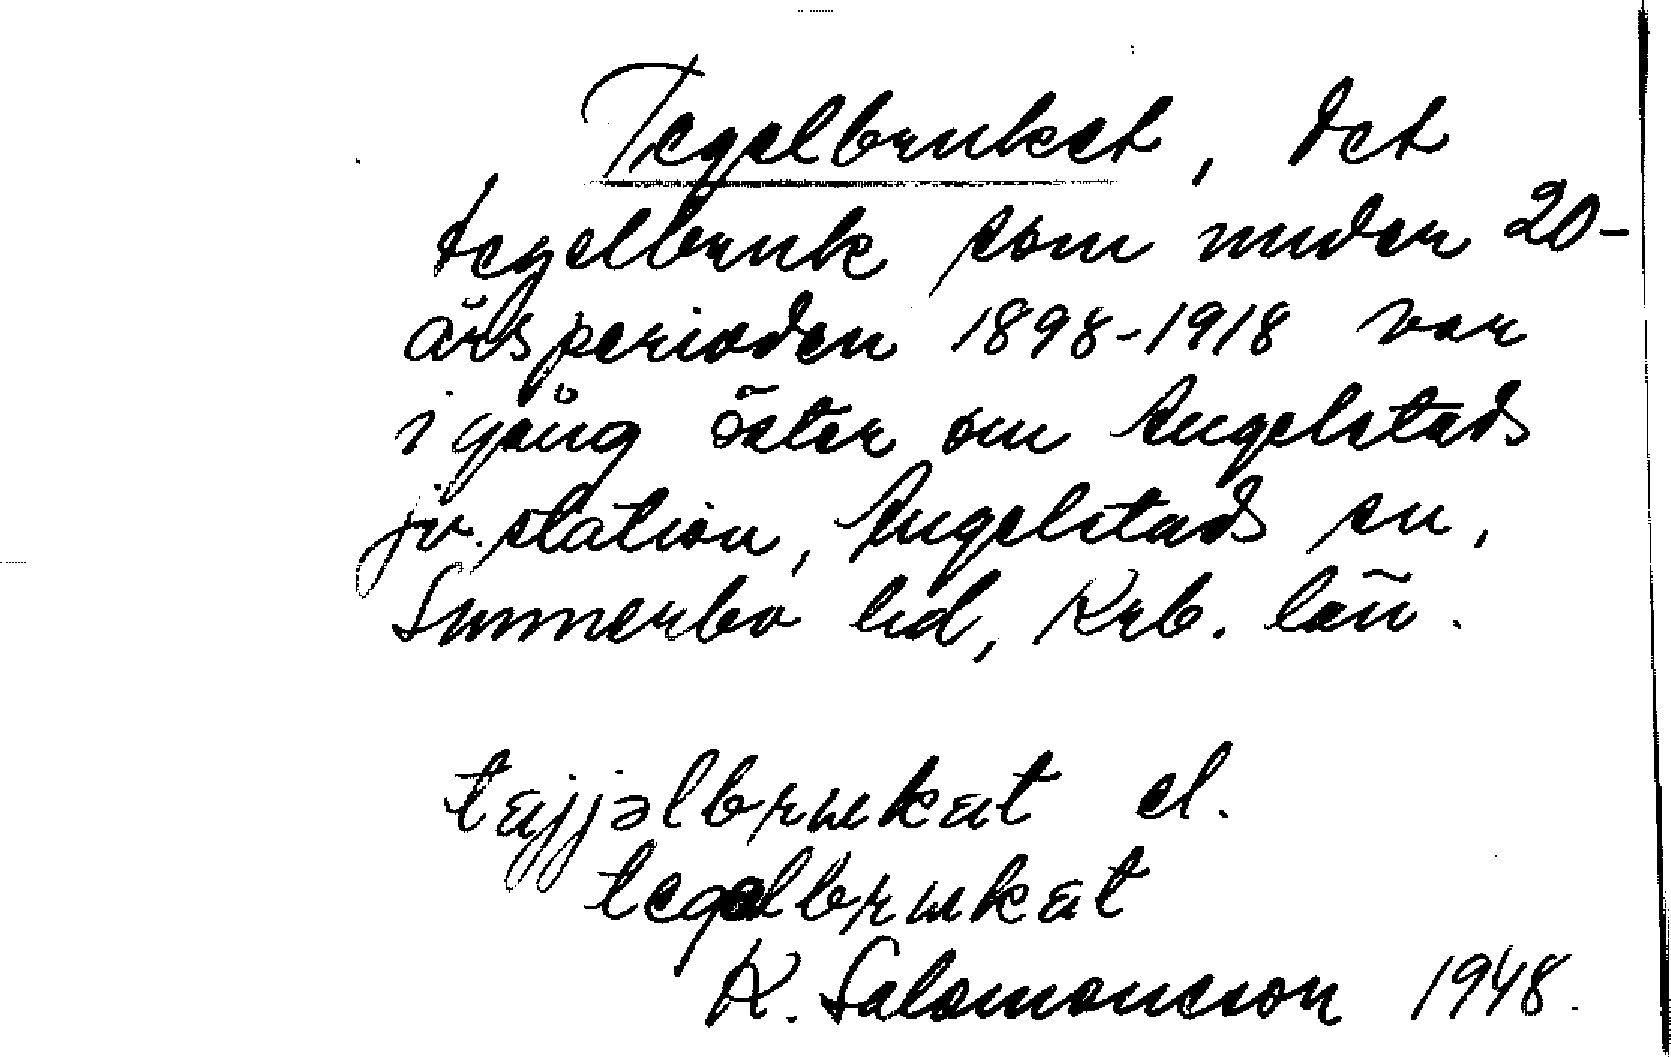 Tegelbruket, det
tegelbruk som under 20-
årsperioden 1898-1918 var
i gång öster om Angelstads
jv. station, Angelstads sn,
Sunnerbo hd, Krb. län.
tæjjəlbrɯkæt el.
tegəlbrɯkæt
K. Salomonsson 1948.